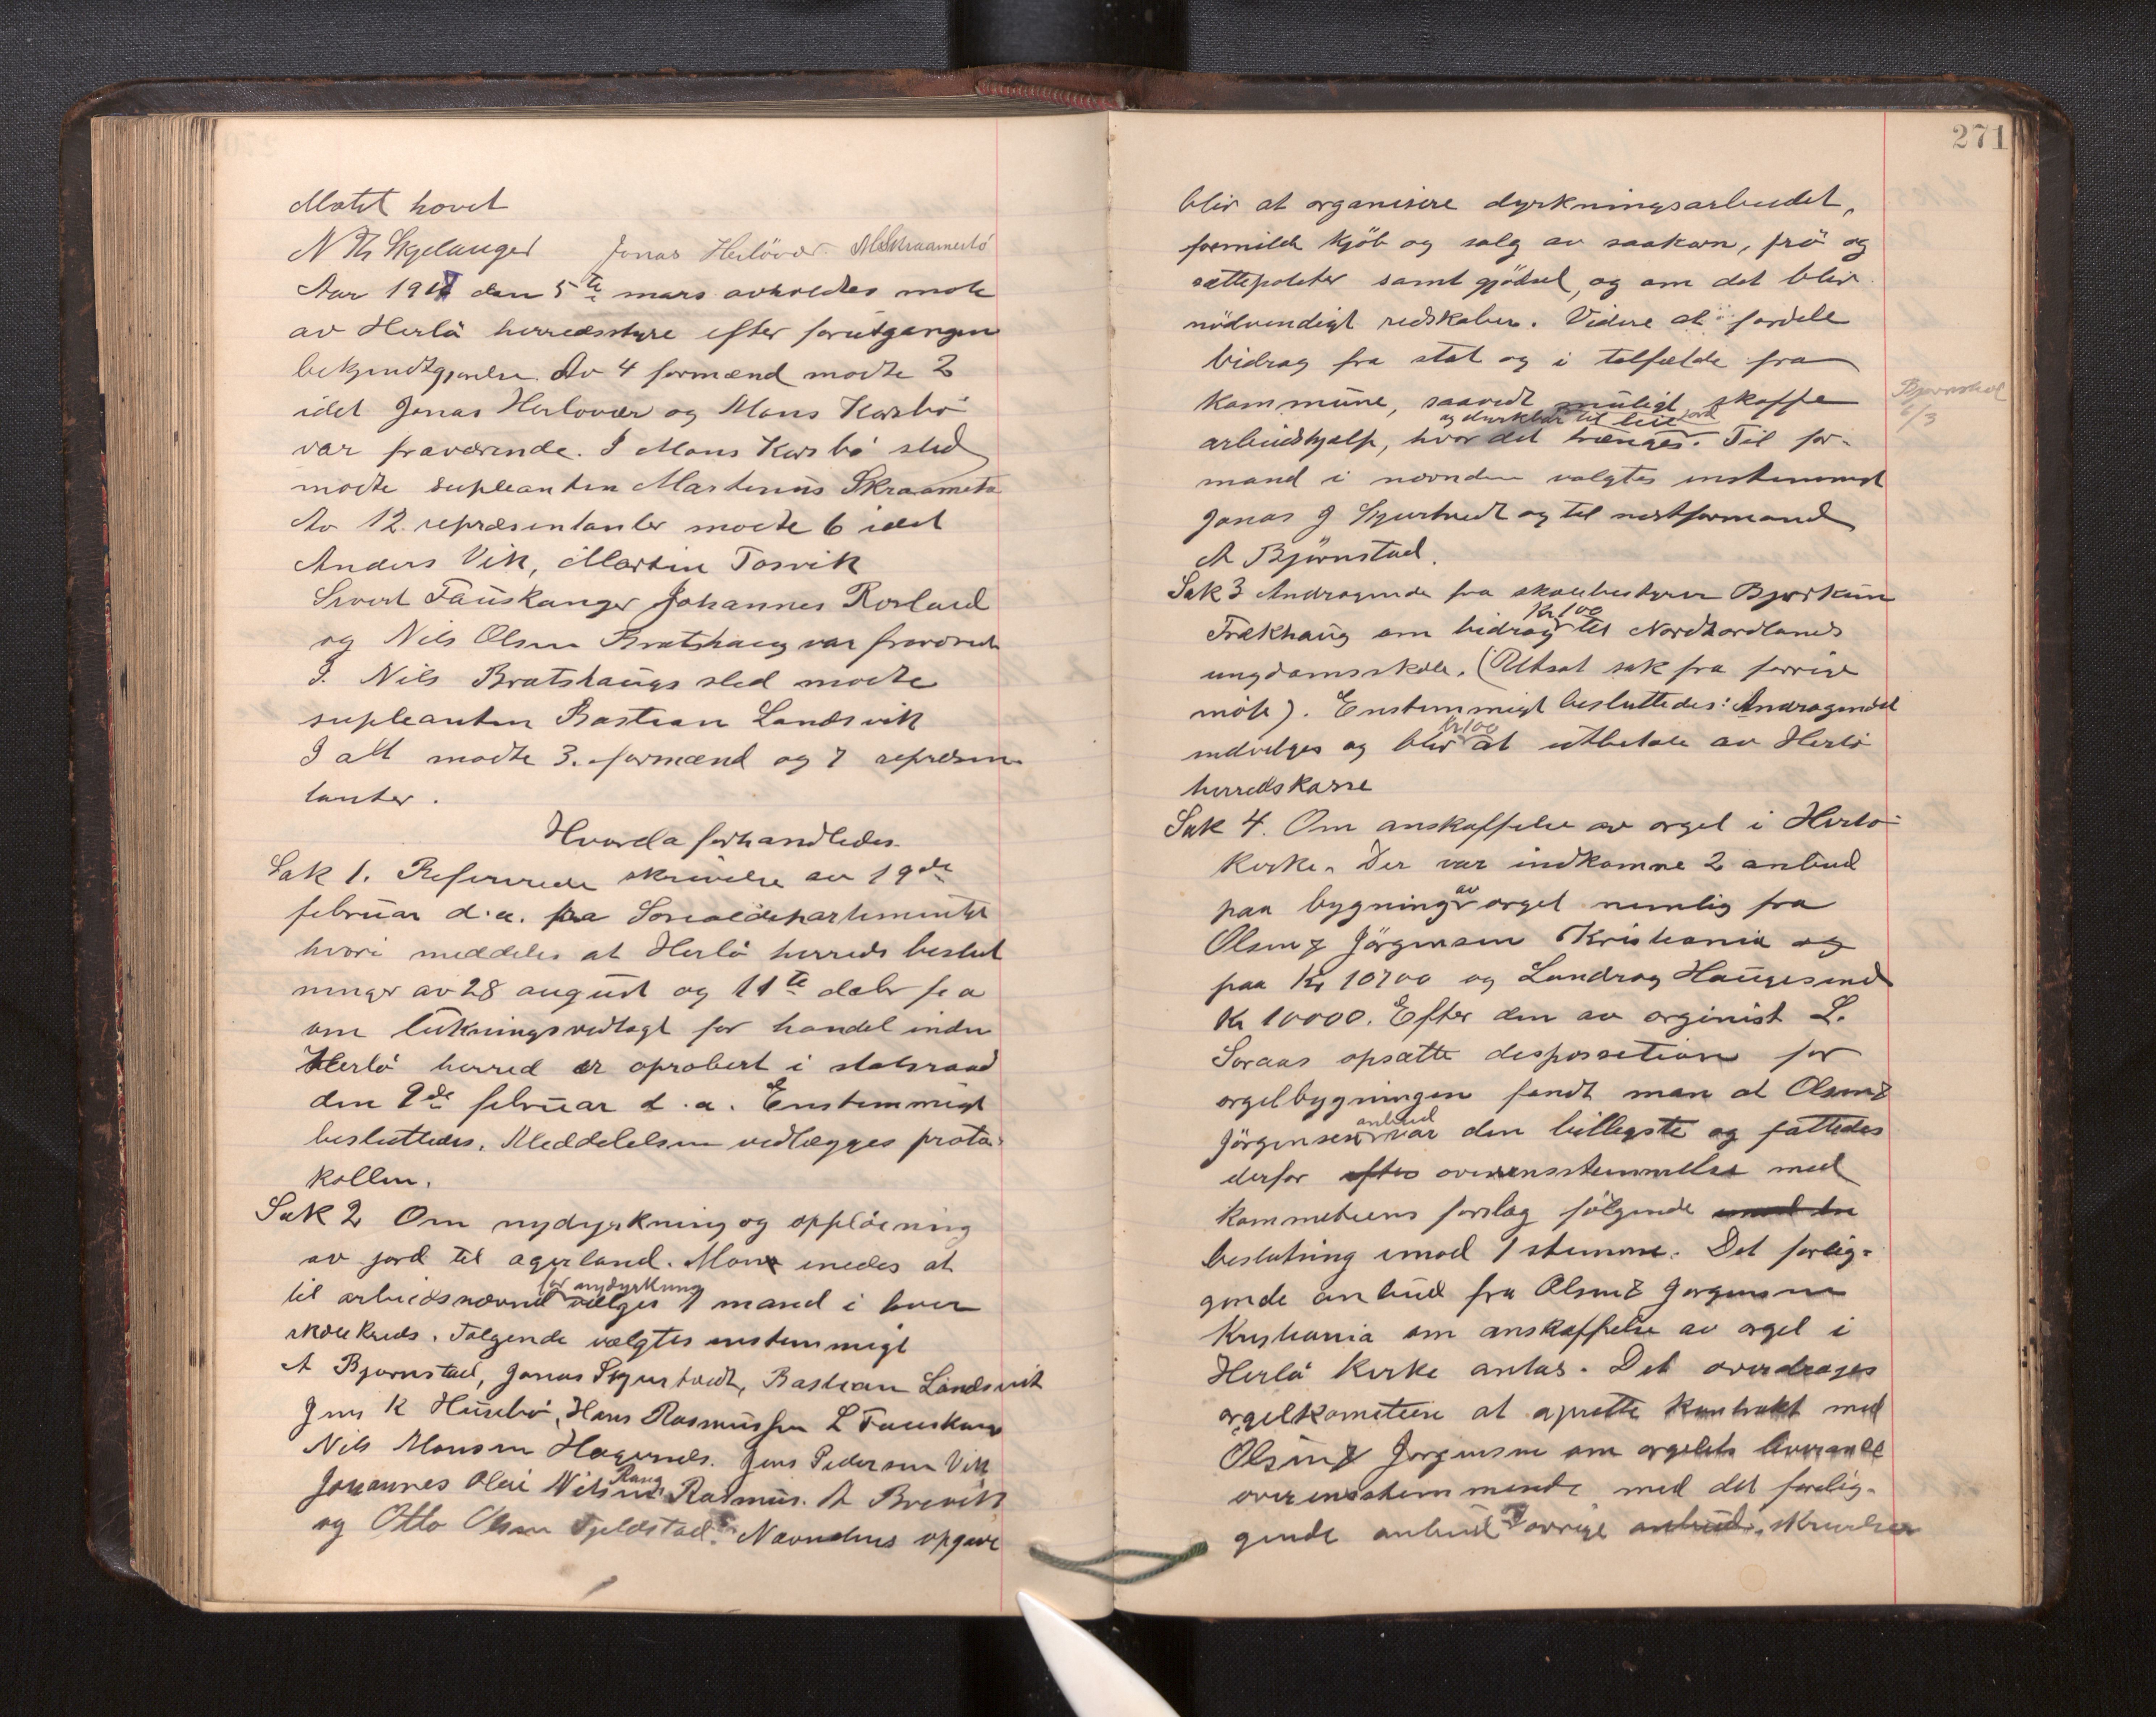 Møtet hævet
N Th Skjelanger Jonas Herløvær. M Skraamestø
Aar 1917 den 5te mars avholdtes møte
av Herlö herredsstyre efter forutgangen
bekjendtgjørelse. Av 4 formænd mødte 2
idet Jonas Herlovær og Mons Karsbö
var fraværende. I Mons Karsbö sted
mødte supleanten Martinus Skraamestø
Av 12 repræsentanter mødte 6 idet
Anders Vik, Martin Tosvik
Sivert Fauskanger Johannes Rosland
og Nils Olsen Bratshaug var fraværende
I. Nils Bratshaugs sted mødte
supleanten Bastian Landsvik
I alt mødte 3. formænd og 7 repræsen
tanter.
Hvorda forhandledes
Sak 1. Refererede skrivelse av 19de
februar d.a. fra Socialdepartementet
hvori meddeles at Herlö herreds beslut
ninger av 28 august og 11te debr f a
om lukningsvedtægt for handel inden
Herlö herred er aprobert i statsraad
den 9de februar d.a. Enstemmigt
besluttedes. Meddelelsen vedlægges proto-
kollen.
Sak 2 Om nydyrkning og opplöining
av jord til agerland. Man enedes at
til arbeidsnævnd for nydyrkning vælges 1 mand i hver
skolekreds. Følgende valgtes enstemmigt
A Bjørnstad, Jonas Skjurtvedt, Bastian Landsvik
Jens K Husebö, Hans Rasmussen L Fauskang
Nils Monsen Hagenes. Jens Pedersen Vik
Johannes Olai Nilsen Rang Rasmus. A Brevik
og Otto Olsen Tjeldstad. Nævndens opgave
271
blir at organisere dyrkningsarbeidet,
formidle kjöb og salg av saakorn, frö og
sættepoteter samt gjödsel, og om det blir
nödvendigt redskaber. Videre at fordele
bidrag fra stat og i tilfælde fra
kommune, saavidt muligt skaffe
arbeidshjælp, og dyrkbar til leie jord hvor det trænges. Til for-
mand i nævnden valgtes enstemmigt
Jonas J Skjurtvedt og til nestformand
A Björnstad.
Bjørnstad
6/3
Sak 3 Andragende fra skolebestyrer Bjørkum
Frækhaug om bidrag Kr 100 til Nordhordlands
ungdomsskole. (Utsat sak fra forrige
möte). Enstemmigt besluttedes: Andragendet
indvilges og blir Kr 100 at utbetale av Herlö
herredskasse
Sak 4. Om anskaffelse av orgel i Herlö
kirke. Der var indkomne 2 anbud
paa bygning av orgel nemlig fra
Olsen & Jörgensen Kristiania og
paa Kr 10700 og Landrog Haugesund
Kr 10000. Efter den av orginist L.
Soraas opsatte desposetion for
orgelbygningen fandt man at Olsen &
Jörgensens anbud var den billigste og fattedes
derfor efter overensstemmelse med
kommeteens forslag følgende
beslutning imod 1 stemme. Det forlig-
gende anbud fra Olsen & Jørgensen
Kristiania om anskaffelse av orgel i
Herlö kirke antas. Det overdrages
orgelkometeen at oprette kontrakt med
Olsen & Jørgensen om orgelets leverance
overensstemmende med det forelig-
gende anbud & øvrige anbud, skrivelser